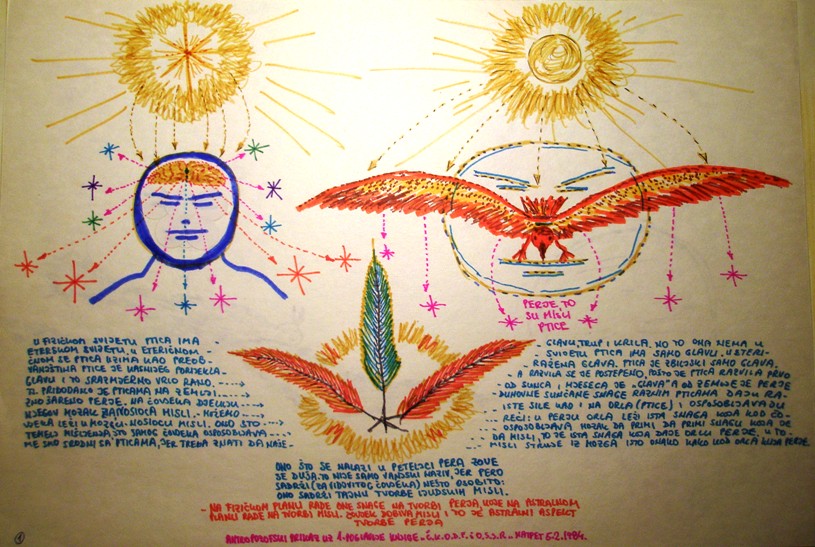 PERJE TO
SU MISLI
PTICE
U FIZIČKOM SVIJETU PTICA IMA -
ETERSKOM SVIJETU, U ETERIČNOM
ČNOM SE PTICA UZIMA KAO PREOB-
VANJŠTINA PTICE JE KASNIJEG PORIJEKLA
GLAVU I TO SRAZMJERNO VRLO RANO.
TI PRIDODANO JE PTICAMA NA ZEMLJI.
ZNO ŠARENO PERJE. NA ČOVJEKA DJELUJU
NJEGOV MOZAK ZA NOSIOCA MISLI. MOŽEMO
VJEKA LEŽI U MOZGU, NOSIOCU MISLI. ONO ŠTO
TEMELJ MIŠLJENJA, ŠTO SAMOG ČOVJEKA OSPOSOBLJAVA
ME SMO SRODNI SA PTICAMA, JER TREBA ZNATI DA NAŠE
GLAVU, TRUP I KRILA. NO TO ONA NEMA U
SVIJETU PTICA IMA SAMO GLAVU. U ETERI-
RAŽENA GLAVA. PTICA JE ZBILJSKI SAMO GLAVA.
A RAZVILA SE JE POSTEPENO, POŠTO JE PTICA RAZVILA PRVO
OD SUNCA I MJESECA JE "GLAVA" A OD ZEMLJE JE PERJE
DUHOVNE SUNČANE SNAGE RAZNIM PTICAMA DAJU RA-
ISTE SILE KAO I NA ORLA (PTICE) I OSPOSOBLJAVAJU
REĆI: U PERJU ORLA LEŽI ISTA SNAGA KOJA KOD ČO-
OSPOSOBLJAVA MOZAK DA PRIMI DA PRIMI SNAGU KOJA JE
DA MISLI, TO JE ISTA SNAGA KOJA DAJE ORLU PERJE. U TO-
MISLI STRUJE IZ MOZGA ISTO ONAKO KAKO KOD ORLA PERJE.
ONO ŠTO SE NALAZI U PETELJCI PERA ZOVE
SE DUŠA. TO NIJE SAMO VANJSKI NAZIV, JER PERO
SADRŽI (ZA VIDOVITOG ČOVJEKA) NEŠTO OSOBITO:
ONO SADRŽI TAJNU TVORBE LJUDSKIH MISLI.
- NA FIZIČKOM PLANU RADE ONE SNAGE NA TVORBI PERJA, KOJE NA ASTRALNOM
PLANU RADE NA TVORBI MISLI. ČOVJEK DOBIVA MISLI I TO JE ASTRALNI ASPEKT
TVORBE PERJA
ANTROPOZOFSKI PRIKAZ UZ 1. POGLAVLJE KNJIGE - Č.K.O.D.F.I.O.S.S.R.
6.2.1984.
1